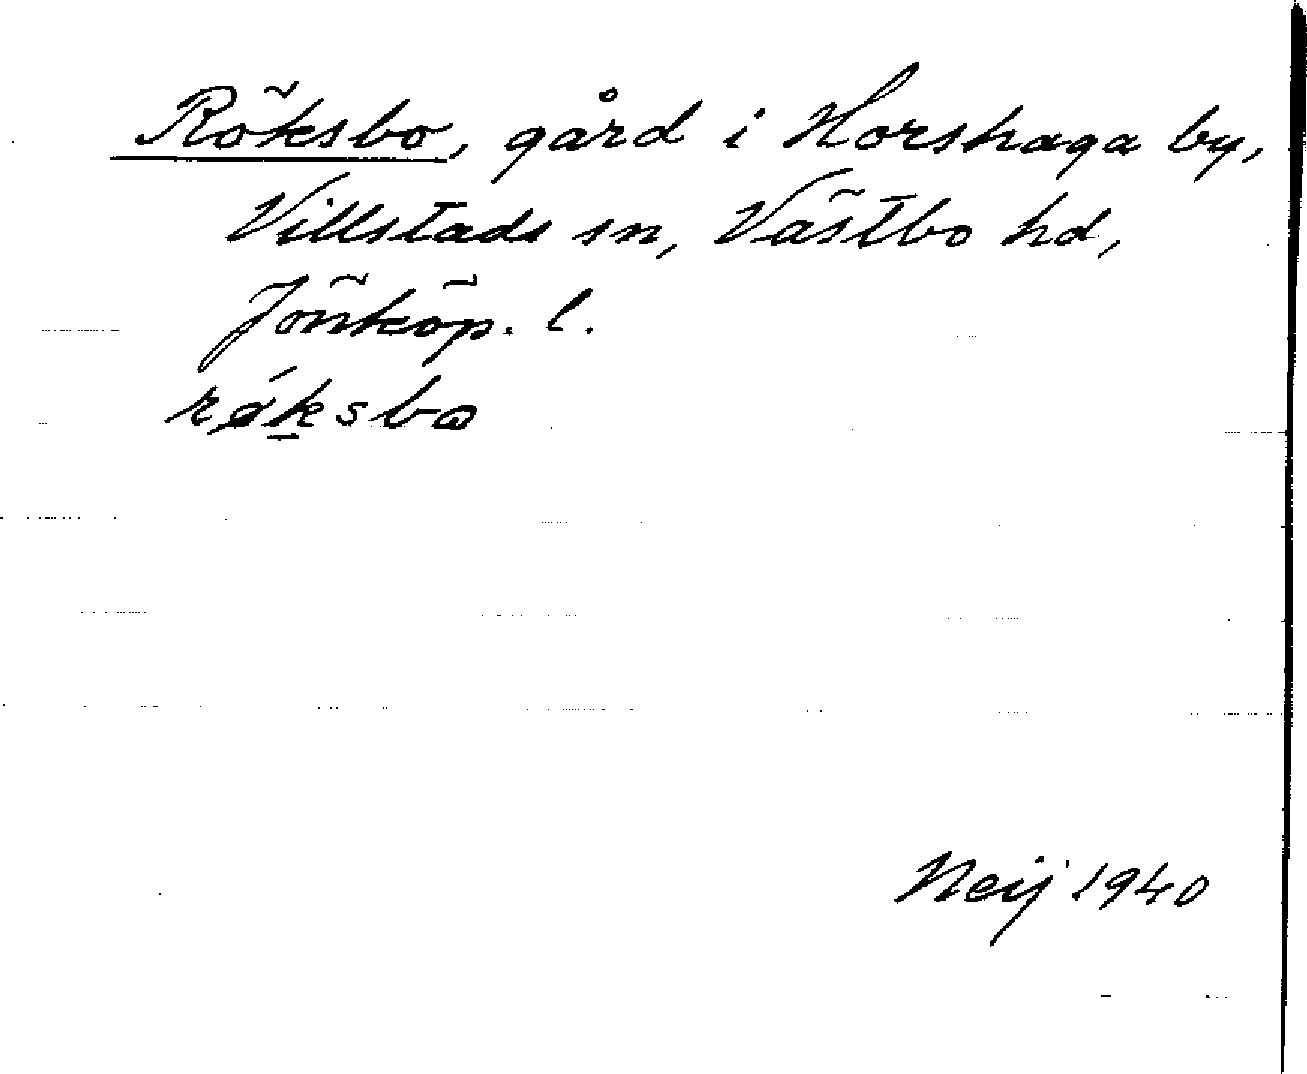 Röksbo, gård i Horshaga by,
Villstads sn, Västbo hd,
Jönköp. l.
rǿ̨k̲sbɷ
Neij 1940